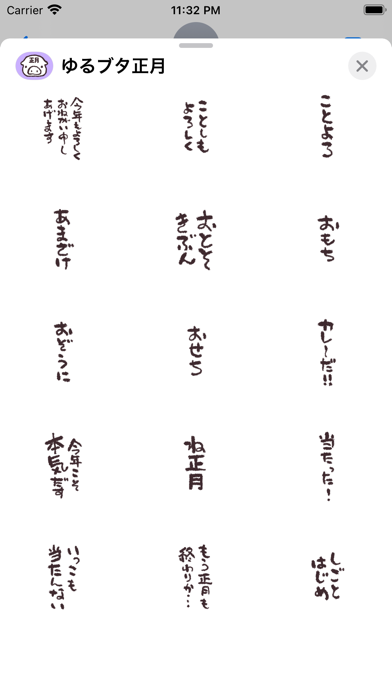 Carrier
11:32 PM
正月
ゆるブタ正月
今年もよろしく
おねがい申し
あげます
ことしも
よろしく
ことよろ
あまざけ
おとそ
きぶん
おもち
おぞうに
おせち
カレーだ!!
今年こそ
本気だす
ね正月
当たった!
いっこも
当たんない
もう正月も
終わりか…
しごと
はじめ